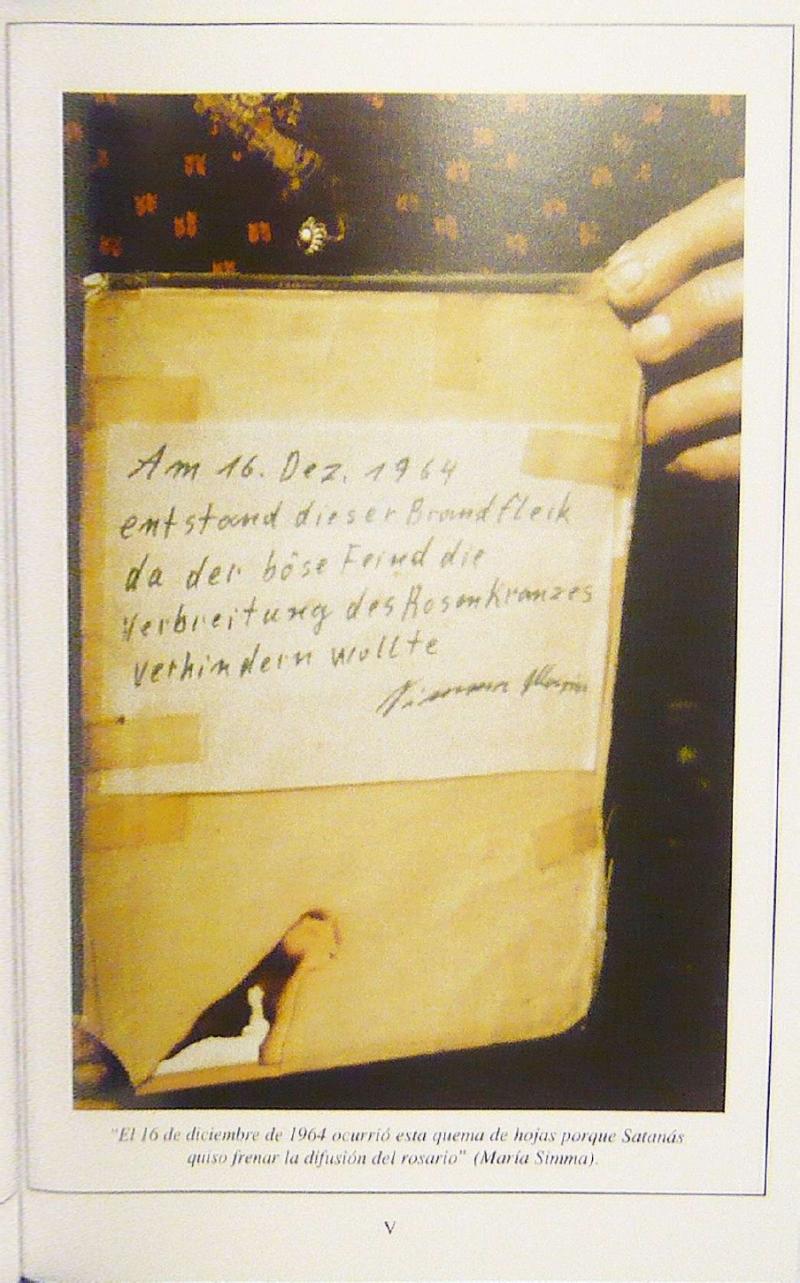 Am 16. Dez. 1964
entstand dieser Brandfleik
da der böse Feind die
Verbreitung des Rosenkranzes
verhindern wollte
Simma Maria
"El 16 de diciembre de 1964 ocurrió esta quema de hojas porque Satanás
quiso frenar la difusión del rosario" (María Simma).
V